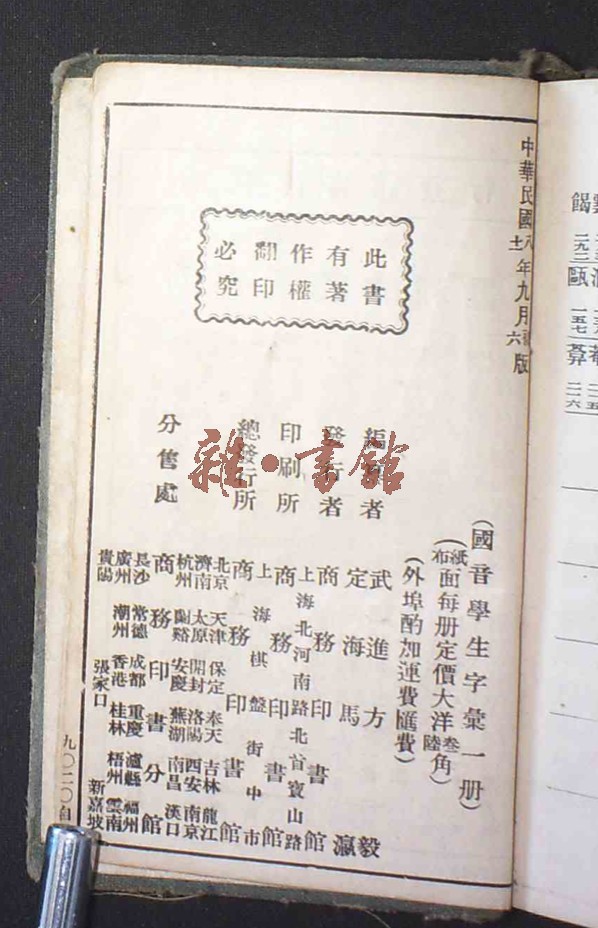 中華民國八年九月初版
十一 六
(國音學生字彙一册)
(紙布面每册定價大洋叁陸角)
(外埠酌加運費匯費)
此書有著作權翻印必究
編纂者 武進方毅 定海馬瀛
發行者 商務印書館
印刷所 上海北河南路北首寶山路 商務印書館
總發行所 上海棋盤街中市 商務印書館
分售處
北京 天津 保定 奉天 吉林 龍江
濟南 太原 開封 洛陽 西安 南京
杭州 蘭谿 安慶 蕪湖 南昌 漢口
商務印書分館
長沙 常德 成都 重慶 瀘縣 福州
廣州 潮州 香港 桂林 梧州 雲南
貴陽 張家口 新嘉坡
九〇二〇自
雜·書館